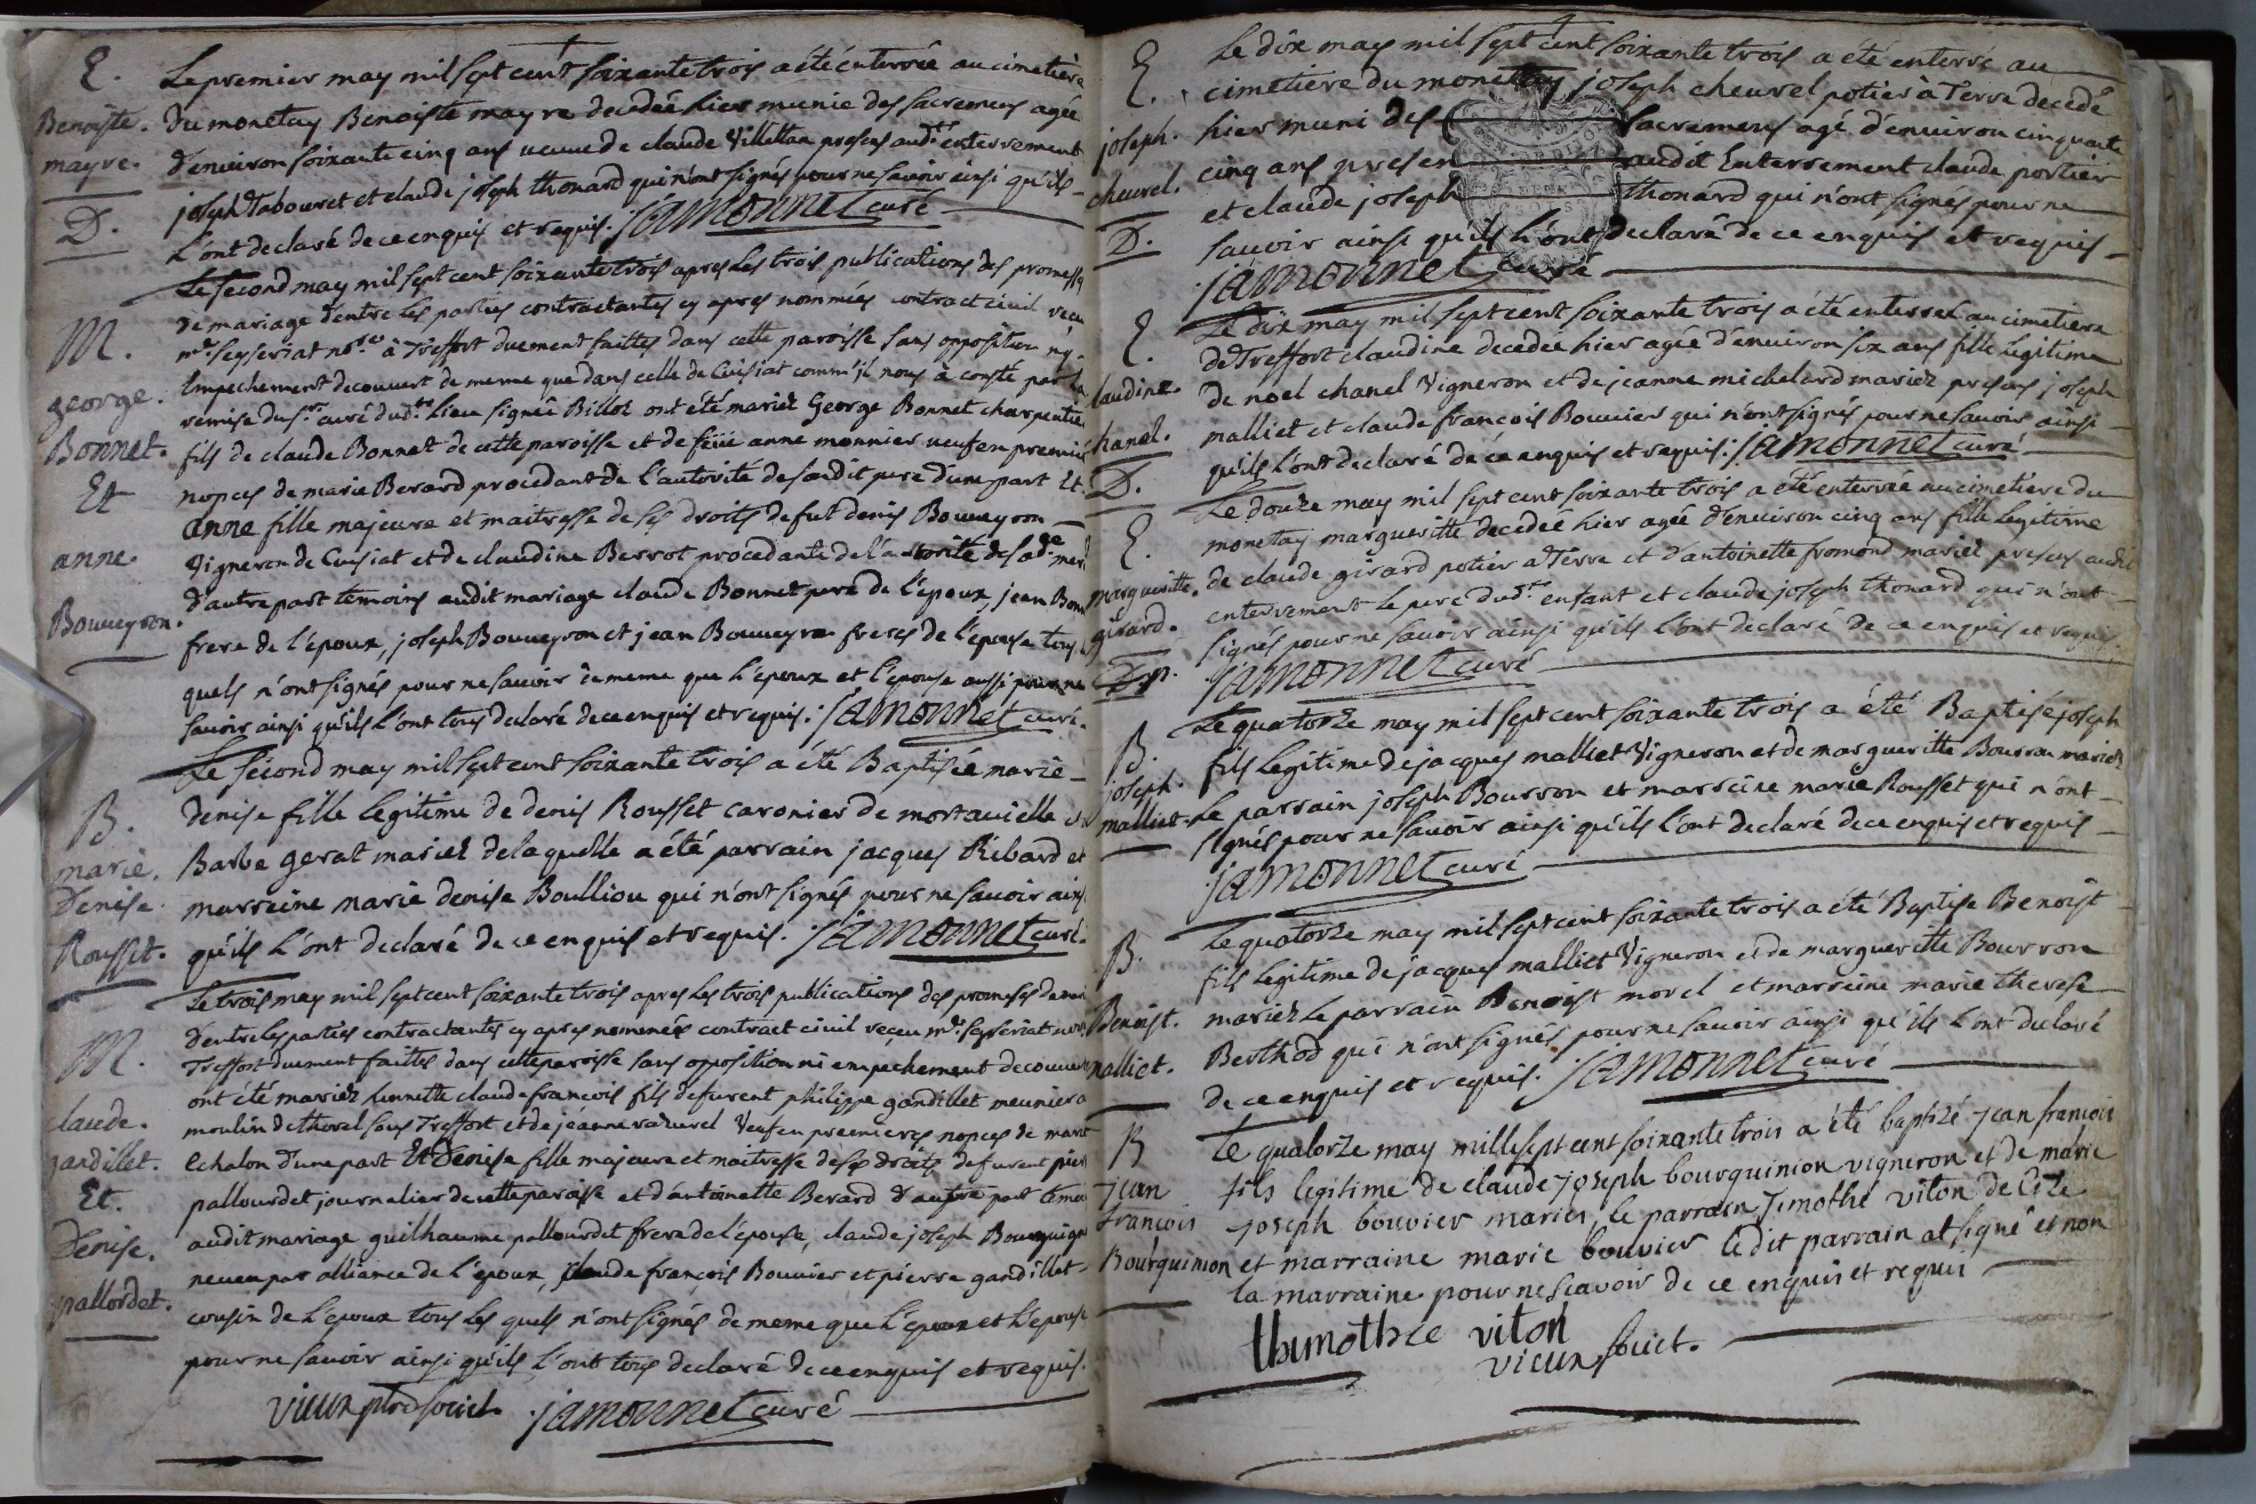 E.
Benoiste.
mayre.
D.
Le premier may mil sept cent soixante trois a été enterrée au cimetière
du monetay Benoiste mayre decedée hier munie des sacremens agée
d'environ soixante cinq ans veuve de claude Villettaz presens aud.t enterrement
joseph Tabouret et claude joseph thonard qui n'ont signés pour ne savoir ainsi qu'ils
l'ont declaré de ce enquis et requis. jamonnet curé
M.
george.
Bonnet.
Et
anne.
Bouveyron.
Le second may mil sept cent soixante trois apres les trois publications des promesses
de mariage d'entre les parties contractantes cy apres nommées contract civil recu
m.e seyseriat no.re à Treffort duement faittes dans cette paroisse sans opposition ny
Empechement decouvert de meme que dans celle de Cuisiat comm'il nous à consté par la
remise du s.r curé dud.t lieu signée Billot ont été mariez George Bonnet charpentier
fils de claude Bonnet de cette paroisse et de feüe anne monnier veuf en premier
nopces de marie Berard procedant de l'autorité de sondit pere d'une part Et
anne fille majeure et maitresse de ses droits de fut denis Bouveyron
Vigneron de Cuisiat et de claudine Berrot procedante de l'autorité de sad.e mer
d'autre part temoins audit mariage claude Bonnet pere de l'epoux, jean Bonn
frere de l'époux, joseph Bouveyron et jean Bouveyron freres de l'épouse tous
quels n'ont signés pour ne savoir de meme que l'epoux et l'épouse aussi pour ne
savoir ainsi qu'ils l'ont tous declaré de ce enquis et requis. jamonnet curé.
B.
marie.
Denise.
Rousset.
Le second may mil sept cent soixante trois a été Baptisée marie
denise fille legitime de denis Rousset caronier de mortavielle
Barbe gerat mariez de laquelle a été parrain jacques Ribard et
marreine marie denise Boulliou qui n'ont signés pour ne savoir ains
qu'ils l'ont declaré de ce enquis et requis. jamonnet curé.
M.
claude.
gandillet.
Et.
Denise.
pallordet.
Le trois may mil sept cent soixante trois apres les trois publications des promesses de mari
d'entre les parties contractantes cy apres nommées contract civil reçeu m.e seyseriat
Treffort duement faittes dans cette paroisse sans opposition ni empechement decouvert
ont été mariez honnette claude francois fils de furent philippe gandillet meunier a
moulin de thorel sous Treffort et de jéanne Veuf en premieres nopces de marie
Echalon d'une part Et Denise fille majeure et maitresse de ses droits de furent pier
pallourdet journalier de cette paroisse et d'antoinette Berard d'autre part temoi
audit mariage guilhaume pallourdet frere de l'épouse, claude joseph Bourquign
neveu par alliance de l'époux, claude françois Bouvier et pierre gandillet
cousin de l'époux tous les quels n'ont signés de meme que l'époux et l'épouse
pour ne savoir ainsi qu'ils l'ont tous declaré de ce enquis et requis.
vieux ptre sociét. jamonnet curé
E.
joseph.
cheurel.
D.
Le dix may mil sept cent soixante trois a été enterré au
cimetiere du monettay joseph cheurel potier à Terre decedé
hier muni des sacremens agé d'environ cinquante
cinq ans presen audit Enterrement claude portier
et claude joseph thonard qui n'ont signés pour ne
savoir ainsi qu'ils l'ont declaré de ce enquis et requis
jamonnet curé
E.
laudine.
hanel.
D.
Le dix may mil sept cent soixante trois a été enterrée au cimetiere
de Treffort claudine decedée hier agée d'environ six ans fille legitime
de noel chanel Vigneron et de jeanne michelard mariez presens joseph
malliet et claude françois Bouvier qui n'ont signés pour ne savoir ainsi
qu'ils l'ont declaré de ce enquis et requis. jamonnet curé
E.
margueritte.
girard.
D.
Le douze may mil sept cent soixante trois a été enterrée au cimetiere du
monetay margueritte decedée hier agée d'environ cinq ans fille legitime
de claude girard potier a Terre et d'antoinette fromond mariez presens audit
enterrement le pere dud.t enfant et claude joseph thonard qui n'ont
signés pour ne savoir ainsi qu'ils l'ont declaré de ce enquis et requis.
jamonnet curé
B.
joseph.
malliet.
Le quatorze may mil sept cent soixante trois a été Baptisé joseph
fils legitime de jacques malliet Vigneron et de margueritte Bourron mariez
Le parrain joseph Bourron et marreine marie Rousset qui n'ont
signés pour ne savoir ainsi qu'ils l'ont declaré de ce enquis et requis
jamonnet curé
B.
Benoist.
malliet.
Le quatorze may mil sept cent soixante trois a été Baptise Benoist
fils legitime de jacques malliet Vigneron et de margueritte Bourron
mariez le parrain Benoist morel et marreine marie therese
Berthod qui n'ont signés pour ne savoir ainsi qu'ils l'ont declaré
de ce enquis et requis. jamonnet curé
B
jean
francois
Bourquinion
Le quatorze may mille sept cent soixante trois a été baptizé jean francois
fils legitime de claude joseph bourquinion vigneron et de marie
joseph bouvier mariés, le parrain Timothé viton de
et marraine marie bouvier ledit parrain at signé et non
la marraine pour ne scavoir de ce enquis et requis
thimothée viton
vieux sociét.